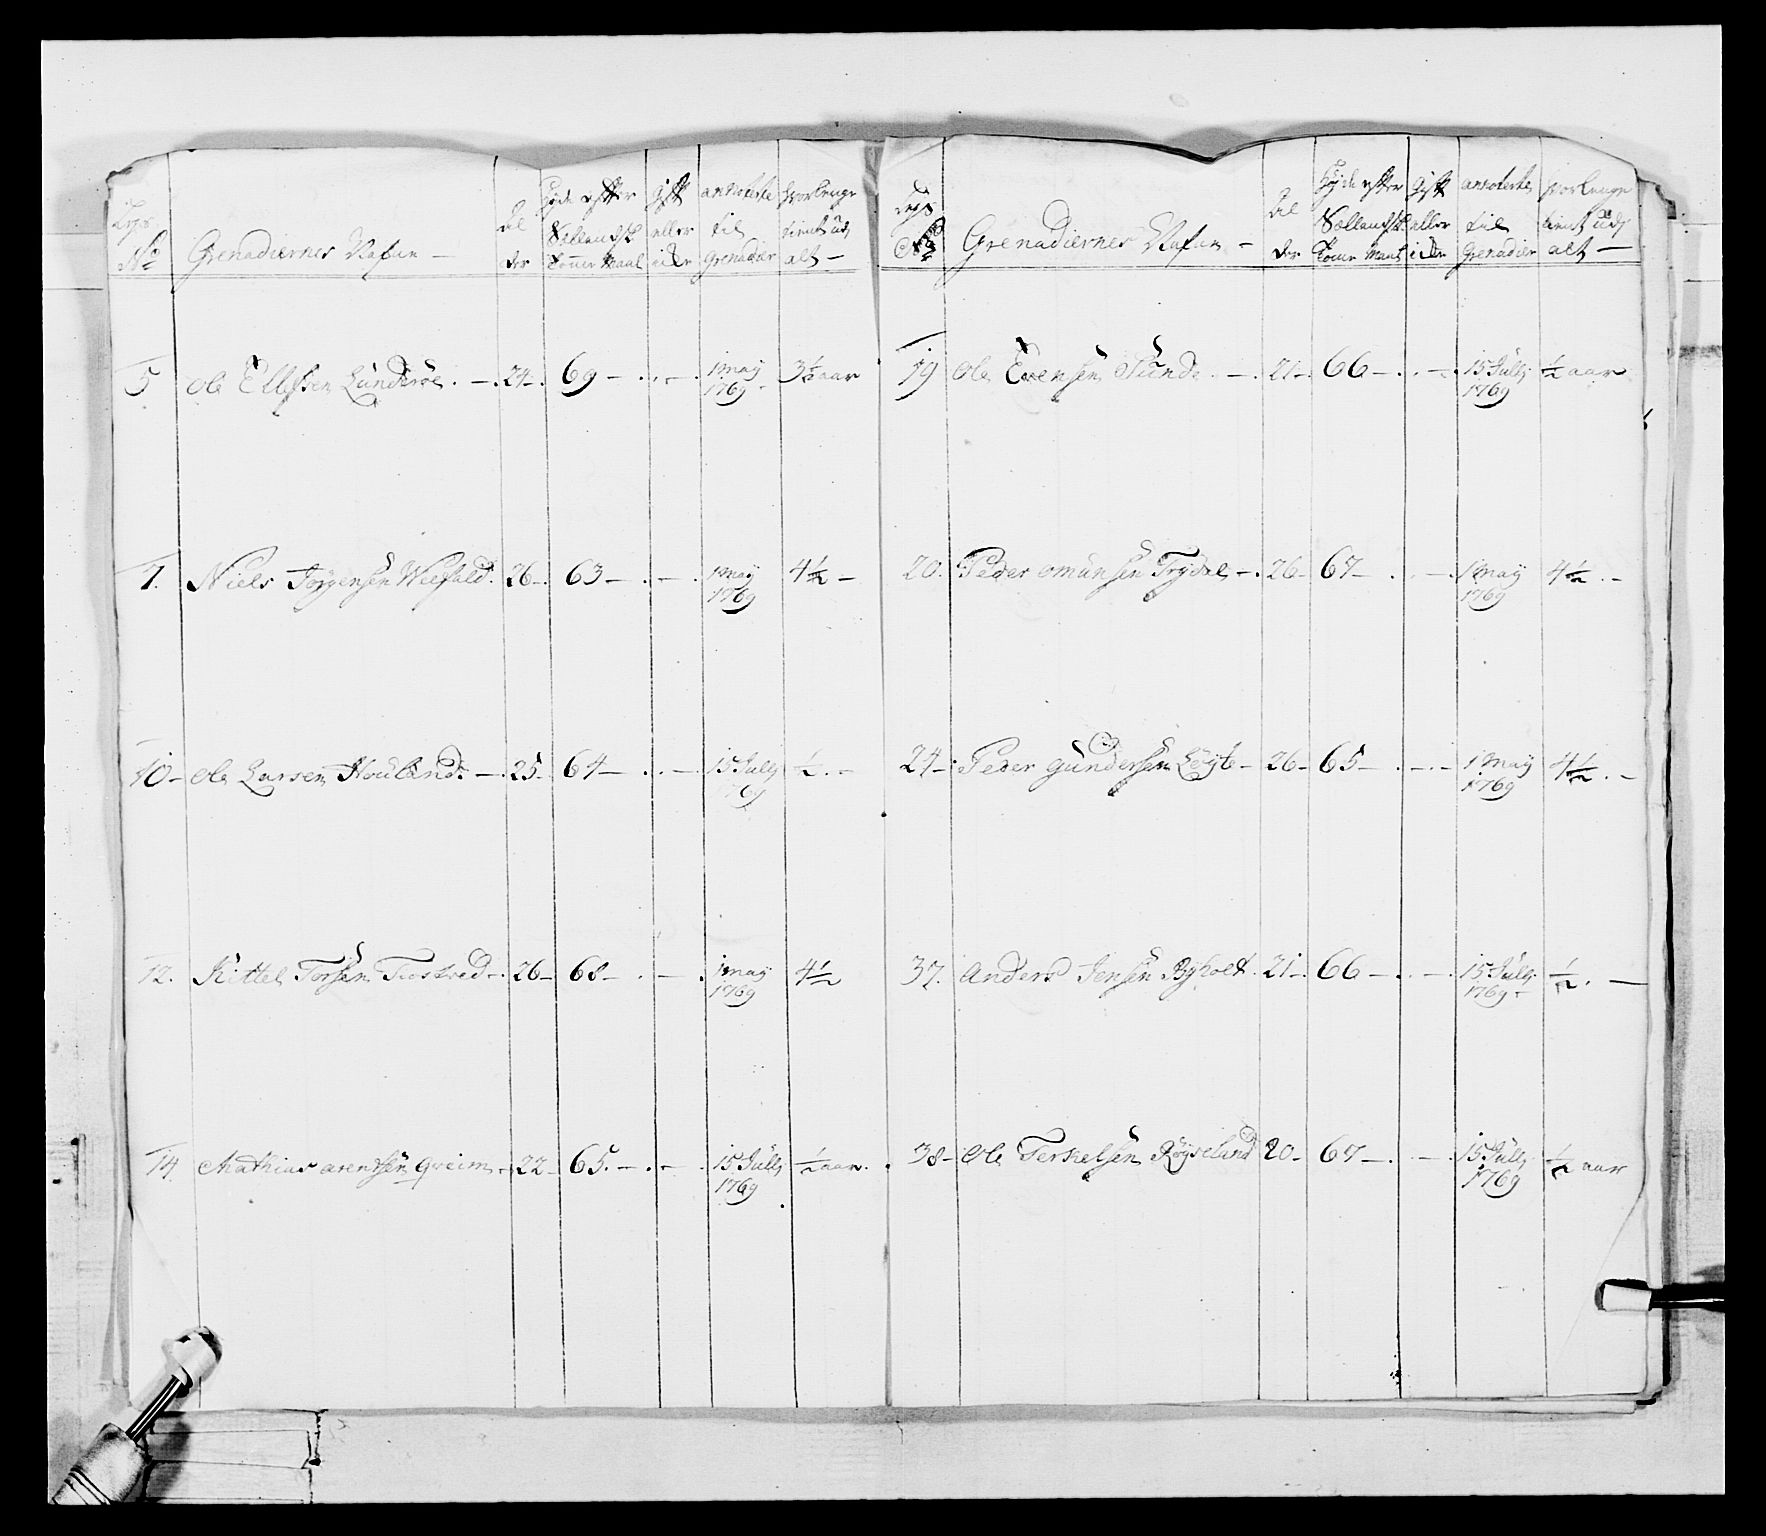 Legs No | Grenadiernes Nafne — | Alder | Høide efter Siellandsk Tomme Maal | Gift eller ei | annoterte til Grenadier | hvor lenge tient udi alt —
5 | Ole Ellefsen Lunderöe . — . | 24 — . | 69 — . | . — . | 1 May 1769 — | 3½ aar
7. | Niels Jörgensen . | 26 — . | 63 — . | — . | 1 May 1769 | 4½ —
10 — | Ole Larsen Houlande — . | 25 . | 64 — | . . — . | 15 Julij 1769 | ½ . —
12. | Kittel Torsen — . | 26 — | 68 — | . — . | 1 May 1769 | 4½
14 | Mathias arentsen Greim — | 22 — | 65 . — . | — . | 15 Julij 1769 | ½ aar .
Legs No | Grenadiernes Nafne — | Alder | Høide efter Siellandsk Tomme Maal | Gift eller ei | annoterte til Grenadier | hvor lenge tient udi alt —
19 | Ole Evensen Sunde . — . | 21 — . | 66 — . | . — . | 15 Julij 1769 | ½ aar
20. | Peder omunsen Trydal — . | 26 — | 67 — | . . — . | 1 May 1769 | 4½ . —
24 — . | Peder gundersen — | 26 — | 65 — | . — . — | 1 May 1769 | 4½ . —
37. | Anders Jensen Ryholt . | 21 — . | 66 — . | . — . | 15 Julij 1769 — | ½ . —
38 — | Ole Terkelsen Röyselund | 20 — | 67 — . | . — . | 15 Julij 1769 | ½ aar